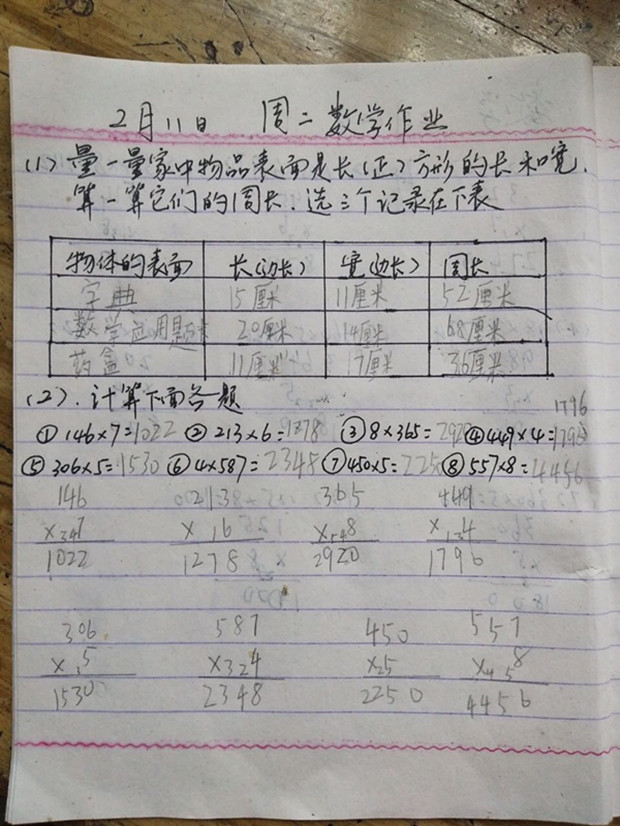 2月11日 周二数学作业
(1) 量一量家中物品表面是长(正)方形的长和宽.
算一算它们的周长.选三个记录在下表
物体的表面 长(边长) 宽(边长) 周长
字典 15厘米 11厘米 52厘米
数学应用题本 20厘米 14厘米 68厘米
药盒 11厘米 7厘米 36厘米
(2).计算下面各题
1796
①146×7=1022 ②213×6=1278 ③8×365=2920 ④449×4=1796
⑤306×5=1530 ⑥4×587=2348 ⑦450×5=2250 ⑧557×8=4456
146 213 365 449
×347 ×16 ×548 ×134
1022 1278 2920 1796
306 587 450 557
×35 ×324 ×25 ×458
1530 2348 2250 4456